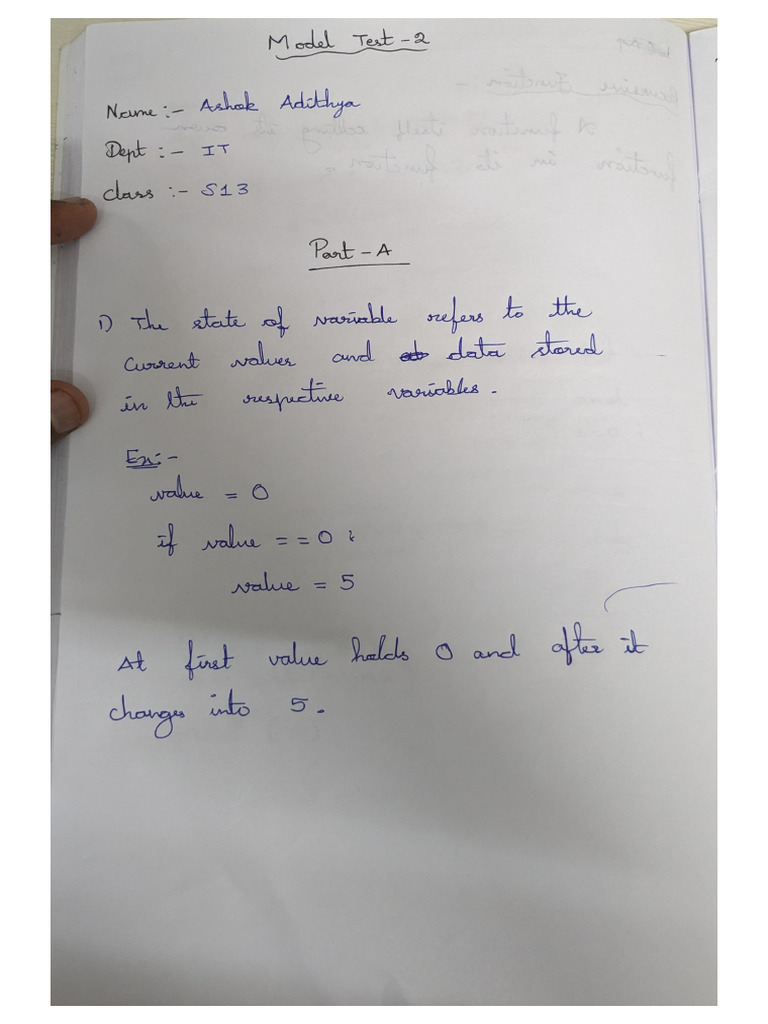 Model Test - 2
Name :- Ashok Adithya
Dept :- IT
class :- S13
Part - A
1) The state of variable refers to the
current values and data stored
in the respective variables.
Ex:-
value = 0
if value == 0 :
value = 5
At first value holds 0 and after it
changes into 5.
Recursive Function :-
A function itself calling its own
function in its function.